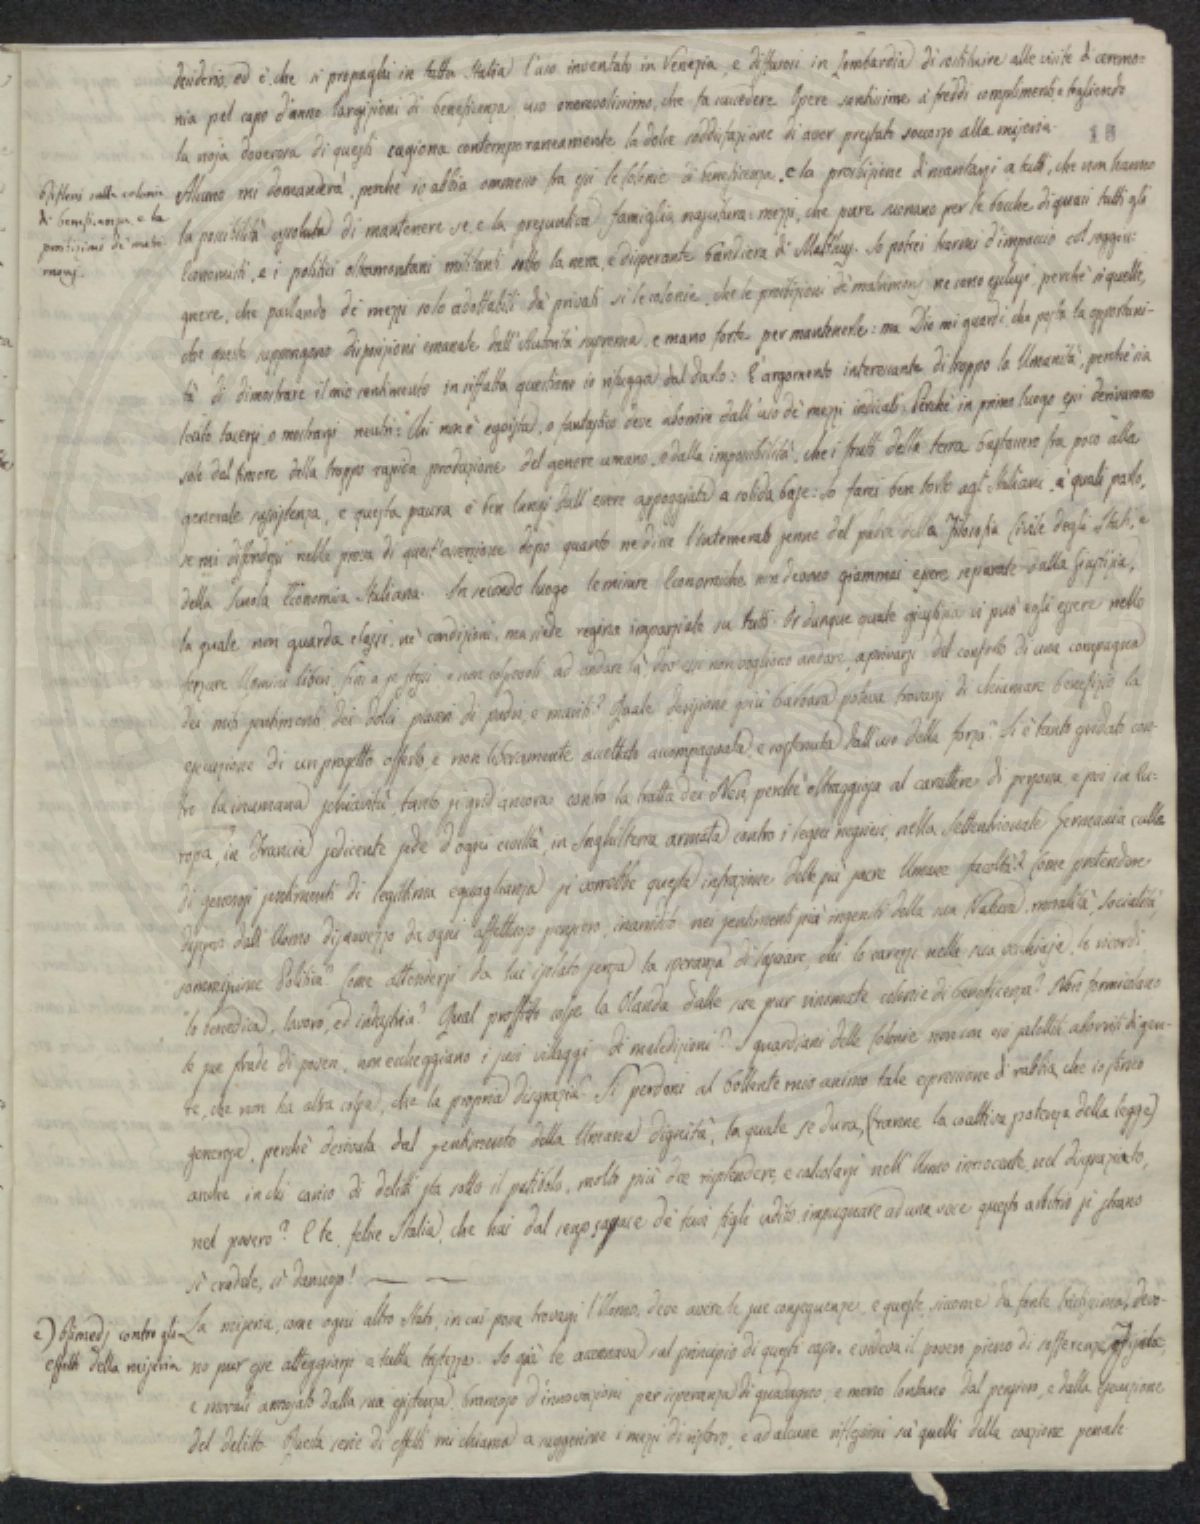 desiderio, ed è che si propaghi in tutta Italia l'uso inventato in Venezia, e diffusosi in Lombardia di sostituire alle visite di ceremo=
nia pel capo d'anno largizioni di beneficenza, uso onorevolissimo, che fa succedere Opere santissime a freddi complimenti, e togliendo
la noja doverosa di questi cagiona contemporaneamente la dolce soddisfazione di aver prestato soccorso alla miseria.
15
Riflessi sulle colonie
di beneficenza e la
proibizione de' matri
monj.
Alcuno mi domanderà, perché io abbia ommesso fra essi le Colonie di beneficenza, e la proibizione di maritarsi a tutti, che non hanno
la possibilità assoluta di mantenere se, e la presuntiva famiglia nascitura: mezzi, che pure suonano per le bocche di quasi tutti gli
Economisti, e i politici oltramontani militanti sotto la nera, e disperante bandiera di Malthus. Io potrei trarmi d'impaccio col soggiu=
gnere, che parlando de' mezzi solo adottabili da' privati sì le colonie, che le proibizioni de' matrimonj ne sono esclusi, perché sì quelle,
che queste suppongono disposizioni emanate dall'Autorità suprema, e mano forte per mantenerle: ma Dio mi guardi, che posta la opportuni-
tà di dimostrare il mio sentimento in siffatta questione io rifugga dal darlo: È argomento interessante di troppo la Umanità, perché sia
lecito tacersi, o mostrarsi neutri: Chi non è egoista, o fantastico deve aborrire dall'uso de' mezzi indicati: Perché in primo luogo essi derivarono
sole dal timore della troppo rapida produzione del genere umano, e dalla impossibilità, che i frutti della terra bastassero fra poco alla
generale sussistenza, e questa paura è ben lungi dall'essere appoggiata a solida base: Io farei ben torto agl'Italiani, a' quali parlo,
se mi diffondessi nella prova di quest'asserzione dopo quanto ne disse l'intemerata penna del padre della Filosofia Civile degli Stati, e
della Scuola Economica Italiana. In secondo luogo le misure Economiche non devono giammai essere separate dalla Giustizia,
la quale non guarda classi, né condizioni, ma siede regina imparziale su tutti. Or dunque quale giustizia vi può egli essere nello
forzare Uomini liberi, fini a se stessi e non colpevoli ad andare là, dov'essi non vogliono andare, a privarsi del conforto di una compagna
dei miti sentimenti dei dolci piaceri di padri, e mariti? Quale derisione più barbara poteva trovarsi di chiamare benefizio la
esecuzione di un progetto offerto, e non liberamente accettato accompagnata, e sostenuta dall'uso della forza? Si è tanto gridato con-
tro la inumana schiavitù, tanto si grida ancora contro la tratta dei Neri, perché oltraggiosa al carattere di persona, e poi in Eu-
ropa, in Francia sedicente sede d'ogni civiltà, in Inghilterra armata contro i legni negrieri, nella settentrionale Germania culla
di generosi sentimenti di legittima eguaglianza si vorrebbe questa infrazione delle più sacre Umane facoltà? Come pretendere
dippoi dall'Uomo disavvezzo da ogni affettuoso pensiero, inaridito nei sentimenti più ingeniti della sua Natura, moralità, socialità,
sommissione Politica? Come attendersi da lui isolato senza la speranza di lasciare, chi lo carezzi nella sua vecchiaja, lo ricordi
lo benedica, lavoro, ed industria? Qual profitto colse la Olanda dalle sue pur rinomate colonie di beneficenza? Non formicolano
le sue strade di poveri, non echeggiano i suoi villaggi di maledizioni? I guardiani delle Colonie non son eso satelliti aborriti di gen-
te, che non ha altra colpa, che la propria disgrazia. Si perdoni al bollente mio animo tale espressione di rabbia, che io stimo
generosa, perché derivata dal sentimento della Umana dignità, la quale se dura, (tranne la coattiva potenza della legge)
anche in chi carico di delitti sta sotto il patibolo, molto più dee risplendere, e calcolarsi nell'Uomo innocente, nel disgraziato,
nel povero? E te felice Italia, che hai dal senno sagace de' tuoi figli udito impugnare ad una voce questo arbitrio sì strano
sì crudele, sì dannoso! — —
2) Rimedj contro gli
effetti della miseria
La miseria, come ogni altro Stato, in cui possa trovarsi l'Uomo, deve avere le sue conseguenze, e queste, siccome da fonte tristissima, devo-
no pur esse atteggiarsi a tutta tristezza. Io già le accennava sul principio di questo capo, e vedeva il povero pieno di sofferenze fisiche,
e morali annojato dalla sua esistenza, bramoso d'innovazioni per isperanza di guadagno, e meno lontano dal pensiero, e dalla esecuzione
del delitto. Questa serie di effetti mi chiama a suggerirne i mezzi di ristoro, e ad alcune riflessioni su quelli della coazione penale